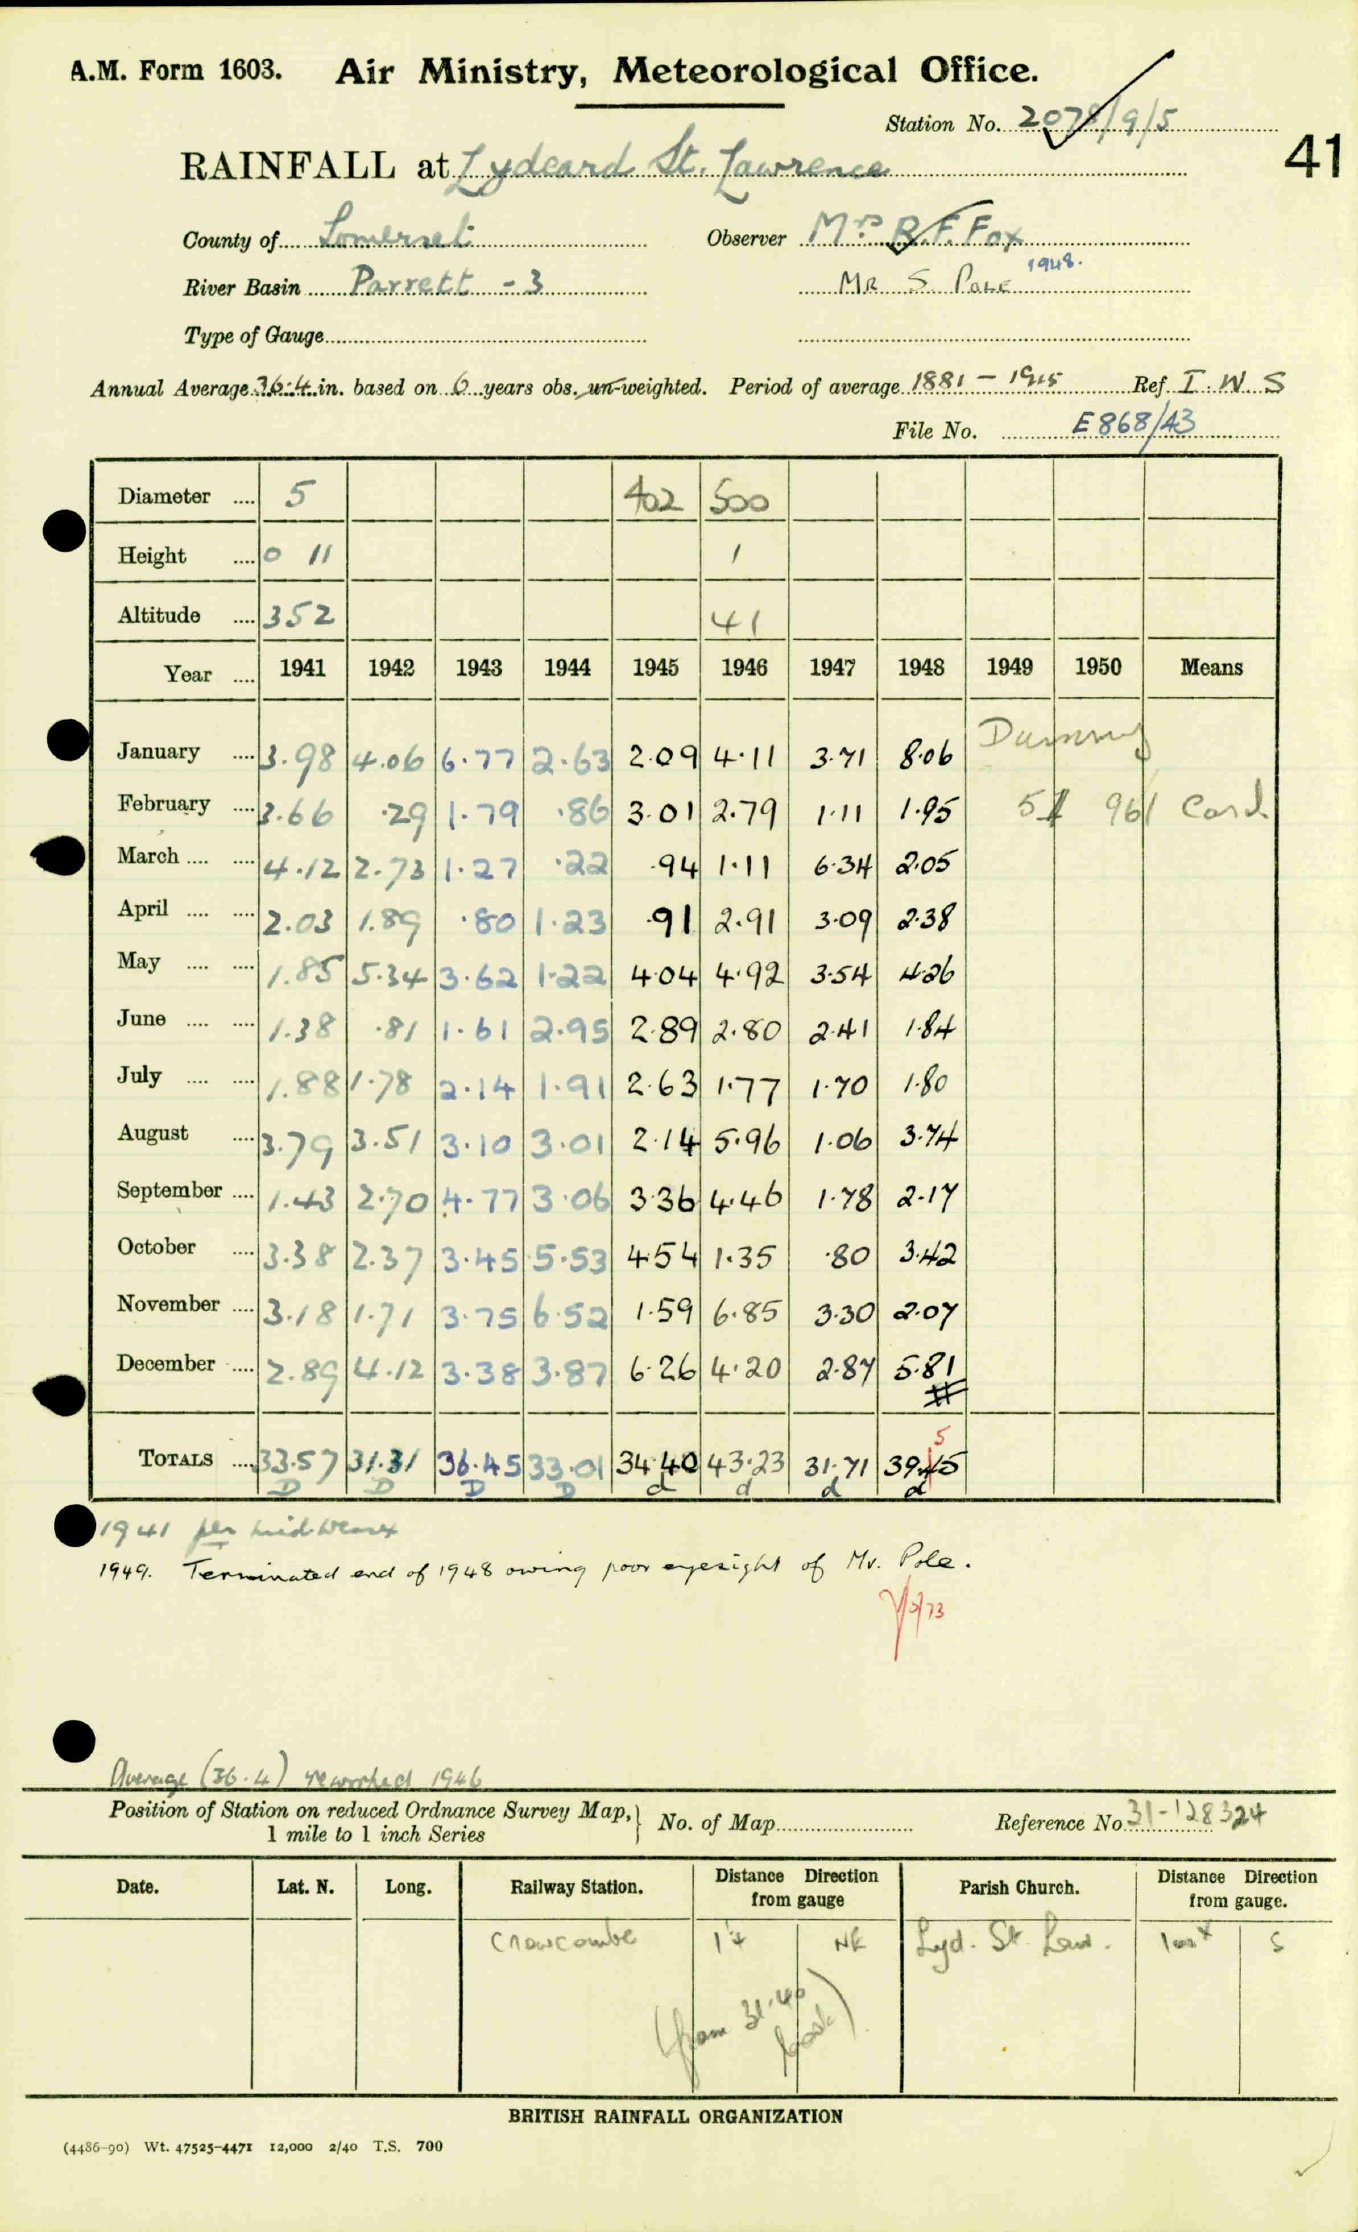 A.M. Form 1603. Air Ministry, Meteorological Office.
Station No. 2078/9/5
41
RAINFALL at Lydeard St. Lawrence
County of Somerset Observer Mrs B.F. Fox
River Basin Parrett - 3 Mr S Pole 1948.
Type of Gauge
Annual Average 36.4 in. based on 6 years obs. un-weighted. Period of average 1881 - 1915 Ref I. W S
File No. E868/43
Diameter .... 5 402 500
Height .... 0 11 1
Altitude .... 352 41
Year .... 1941 1942 1943 1944 1945 1946 1947 1948 1949 1950 Means
January .... 3.98 4.06 6.77 2.63 2.09 4.11 3.71 8.06 Dummy
February .... 3.66 .29 1.79 .86 3.01 2.79 1.11 1.95 51 961 Card
March .... .... 4.12 2.73 1.27 .22 .94 1.11 6.34 2.05
April .... .... 2.03 1.89 .80 1.23 .91 2.91 3.09 2.38
May .... .... 1.85 5.34 3.62 1.22 4.04 4.92 3.54 4.26
June .... .... 1.38 .81 1.61 2.95 2.89 2.80 2.41 1.84
July .... .... 1.88 1.78 2.14 1.91 2.63 1.77 1.70 1.80
August .... 3.79 3.51 3.10 3.01 2.14 5.96 1.06 3.74
September .... 1.43 2.70 4.77 3.06 3.36 4.46 1.78 2.17
October .... 3.38 2.37 3.45 5.53 4.54 1.35 .80 3.42
November .... 3.18 1.71 3.75 6.52 1.59 6.85 3.30 2.07
December .... 2.89 4.12 3.38 3.87 6.26 4.20 2.87 5.81
5
TOTALS .... 33.57 31.31 36.45 33.01 34.40 43.23 31.71 39.45
D D D D d d d d
1941 per
1949. Terminated end of 1948 owing poor eyesight of Mr. Pole.
Average (36.4) reworked 1946
Position of Station on reduced Ordnance Survey Map, No. of Map Reference No. 31-128324
1 mile to 1 inch Series
Date. Lat. N. Long. Railway Station. Distance Direction from gauge Parish Church. Distance Direction from gauge.
Crowcombe NE Lyd. St Law. S
(from 31-40 book)
BRITISH RAINFALL ORGANIZATION
(4486-90) Wt. 47525-4471 12,000 2/40 T.S. 700